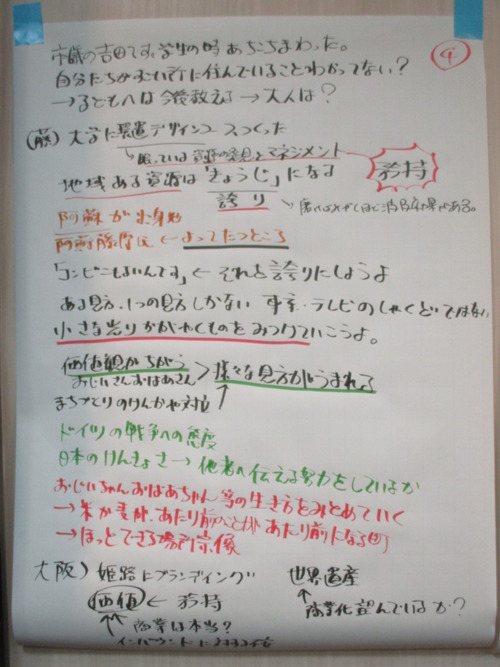 市議の吉田です。学生の時あちこちまわった。
④
自分たちがすごい所に住んでいることわかってない?
→子どもへは今後教える→大人は?
(藤) 大学に景観デザインコースつくった
眠っている資源の発見とマネジメント
矜持
地域ある資源は「きょうじ」になる
誇り
阿蘇が出身地
阿蘇藤原氏 ← よってたつところ
「コンビニもないんです」← それを誇りにしようよ
ある見方、1つの見方しかない 東京・テレビのしゃくどではない
小さな誇りかがやくものをみつけていこうよ。
価値観がちがう > 様々な見方がうまれてる
おじいさんおばあさん
まちづくりのけんかや対立
ドイツの戦争への態度
日本のけんきょさ→他者へ伝える努力をしているか
おじいちゃんおばあちゃん等の生き方をみとめていく
→ あたり前のことがあたり前になる町
→ほっとできる場所宗像
大阪) 姫路にブランディング 世界遺産
価値 ← 矜持 商業化望んでいるか?
商業は本当?